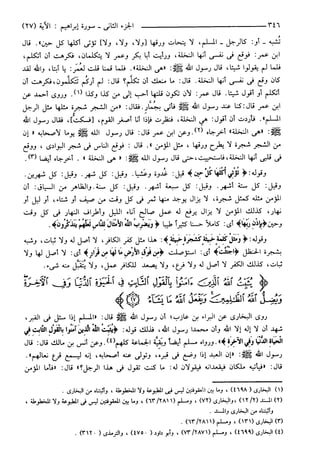 ٣٤٦ ـــ الجزء الثاني - سورة إبراهيم : الآية (٢٧)
تُشبه - أو: كالرجل - المسلم، لا يتحات ورقها [ولا، ولا، ولا] تؤتي أكلها كل حين». قال
ابن عمر: فوقع في نفسي أنها النخلة، ورأيت أبا بكر وعمر لا يتكلمان، فكرهت أن أتكلم،
فلما لم يقولوا شيئا، قال رسول الله ﷺ: «هي النخلة». فلما قمنا قلت لعمر: يا أبتا، والله لقد
كان وقع في نفسي أنها النخلة. قال: ما منعك أن تكلَّم؟ قال: لم أركم تتكلمون، فكرهت أن
أتكلم أو أقول شيئا. قال عمر: لأن تكون قلتها أحب إلي من كذا وكذا (١). وروى أحمد عن
ابن عمر قال: كنا عند رسول الله ﷺ فأتي بجمَّار. فقال: «من الشجر شجرة مثلها مثل الرجل
المسلم». فأردت أن أقول: هي النخلة، فنظرت فإذا أنا أصغر القوم، [فسكتُّ]، فقال رسول الله
ﷺ: «هي النخلة» أخرجاه (٢). وعن ابن عمر قال: قال رسول الله ﷺ يوما لأصحابه: «إن
من الشجر شجرة لا يطرح ورقها، مثل المؤمن». قال: فوقع الناس في شجر البوادي، ووقع
في قلبي أنها النخلة، فاستحييت، حتى قال رسول الله ﷺ: «هي النخلة». أخرجاه أيضا (٣).
وقوله: ﴿تُؤْتِي أُكُلَهَا كُلَّ حِينٍ﴾ قيل: غدوة وعشيا. وقيل: كل شهر. وقيل: كل شهرين.
وقيل: كل ستة أشهر. وقيل: كل سبعة أشهر. وقيل: كل سنة. والظاهر من السياق: أن
المؤمن مثله كمثل شجرة، لا يزال يوجد منها ثمر في كل وقت من صيف أو شتاء، أو ليل أو
نهار، كذلك المؤمن لا يزال يرفع له عمل صالح آناء الليل وأطراف النهار في كل وقت
وحين ﴿بِإِذْنِ رَبِّهَا﴾ أي: كاملا حسنا كثيرا طيبا ﴿وَيَضْرِبُ اللَّهُ الْأَمْثَالَ لِلنَّاسِ لَعَلَّهُمْ يَتَذَكَّرُونَ﴾.
وقوله: ﴿وَمَثَلُ كَلِمَةٍ خَبِيثَةٍ كَشَجَرَةٍ خَبِيثَةٍ﴾: هذا مثل كفر الكافر، لا أصل له ولا ثبات، وشبه
بشجرة الحنظل ﴿اجْتُثَّتْ﴾ أي: استؤصلت ﴿مِنْ فَوْقِ الْأَرْضِ مَا لَهَا مِنْ قَرَارٍ﴾ أي: لا أصل لها ولا
ثبات، كذلك الكفر لا أصل له ولا فرع، ولا يصعد للكافر عمل، ولا يتقبل منه شيء.
يُثَبِّتُ اللَّهُ الَّذِينَ آمَنُوا بِالْقَوْلِ الثَّابِتِ فِي الْحَيَاةِ الدُّنْيَا وَفِي الْآخِرَةِ
وَيُضِلُّ اللَّهُ الظَّالِمِينَ وَيَفْعَلُ اللَّهُ مَا يَشَاءُ
روى البخاري عن البراء بن عازب، أن رسول الله ﷺ قال: «المسلم إذا سئل في القبر،
شهد أن لا إله إلا الله وأن محمدا رسول الله، فذلك قوله: ﴿يُثَبِّتُ اللَّهُ الَّذِينَ آمَنُوا بِالْقَوْلِ الثَّابِتِ فِي
الْحَيَاةِ الدُّنْيَا وَفِي الْآخِرَةِ﴾». ورواه مسلم أيضا وبقية الجماعة كلهم (٤). وعن أنس بن مالك قال: قال
رسول الله ﷺ: «إن العبد إذا وضع في قبره، وتولى عنه أصحابه، إنه ليسمع قرع نعالهم».
قال: «فيأتيه ملكان فيقعدانه فيقولان له: ما كنت تقول في هذا الرجل؟» قال: «فأما المؤمن
(١) البخاري (٤٦٩٨)، وما بين المعقوفين ليس في المطبوعة ولا المخطوطة، وأثبتناه من البخاري.
(٢) المسند (١٢/٢)، والبخاري (٧٢)، ومسلم (٢٨١١/٦٣)، وما بين المعقوفين ليس في المطبوعة ولا المخطوطة،
وأثبتناه من البخاري والمسند.
(٣) البخاري (١٣١)، ومسلم (٢٨١١/٦٣).
(٤) البخاري (٤٦٩٩)، ومسلم (٢٨٧١/٧٣)، وأبو داود (٤٧٥٠)، والترمذي (٣١٢٠).